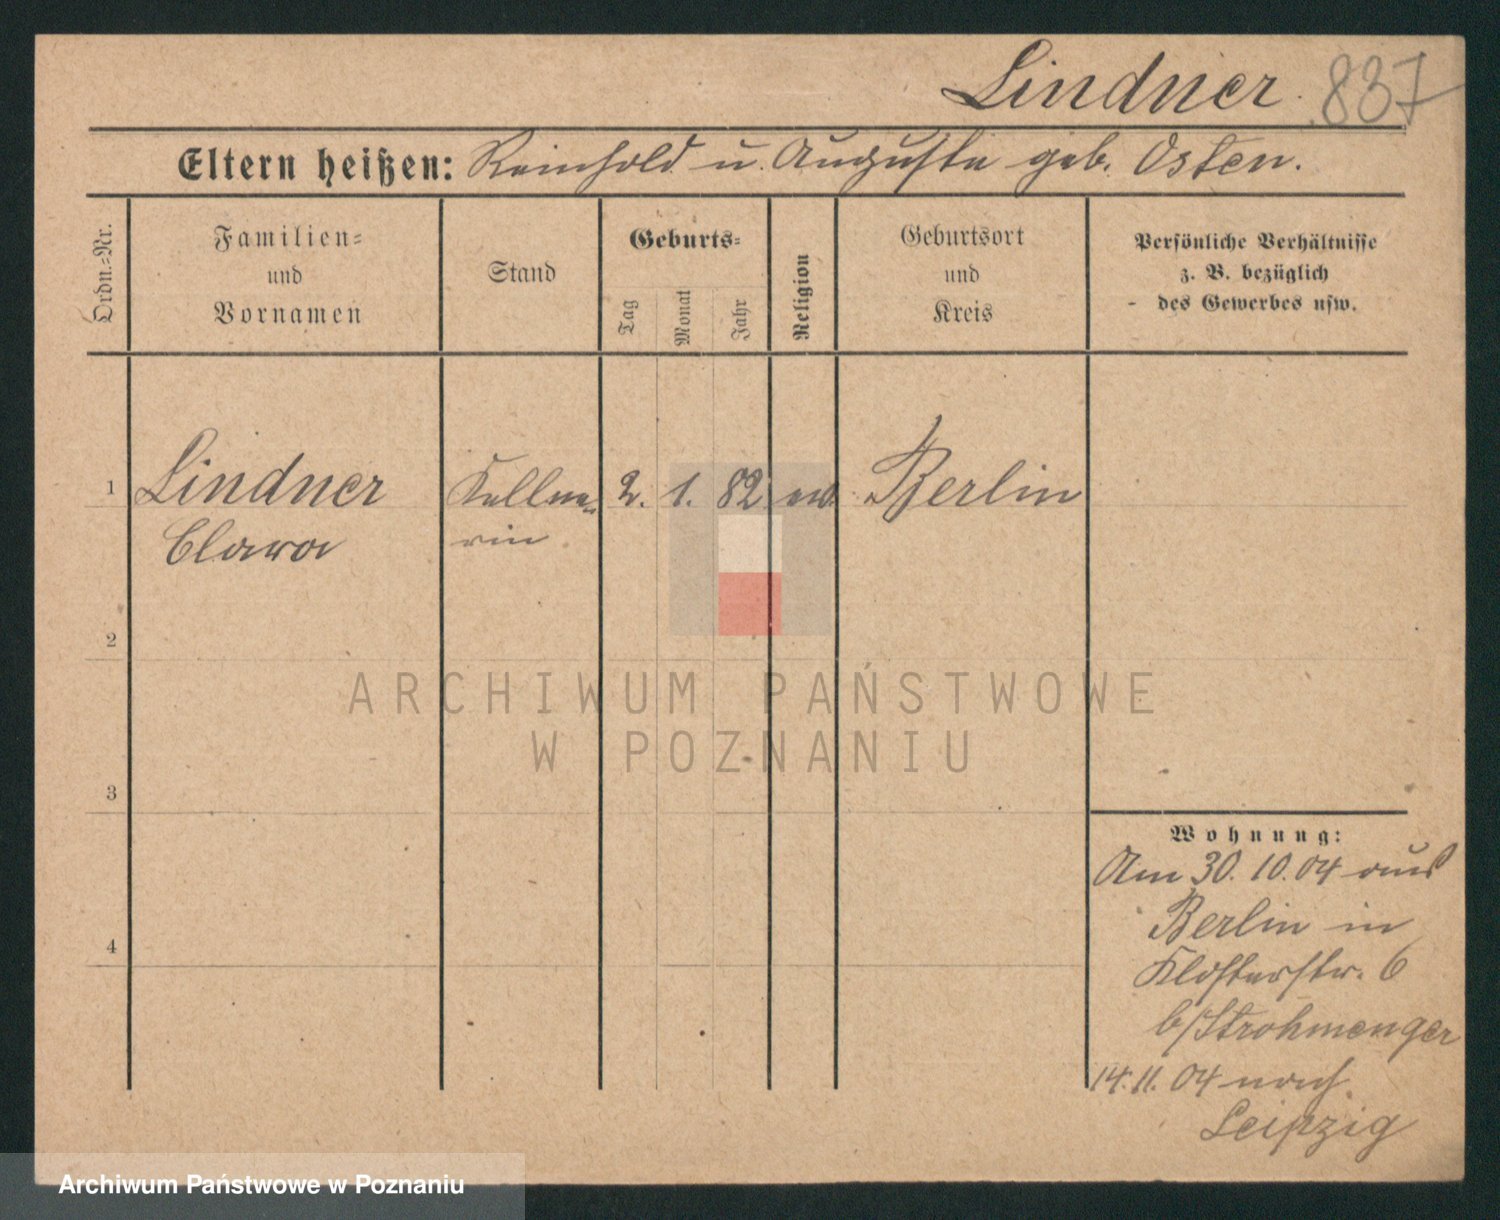 Lindner. 837
Eltern heißen: Reinhold u. Auguste geb. Osten.
Ordn.-Nr.
Familien-
und
Vornamen
Stand
Geburts-
Tag
Monat
Jahr
Religion
Geburtsort
und
Kreis
Persönliche Verhältnisse
z. B. bezüglich
des Gewerbes usw.
1 Lindner Kellne- 2. 1. 82 ev. Berlin
Clara rin
2
ARCHIWUM PAŃSTWOWE
W POZNANIU
3
Wohnung:
Am 30.10.04 aus
Berlin in
4
Klosterstr. 6
b/Strohmenger
14.11.04 nach
Leipzig
Archiwum Państwowe w Poznaniu